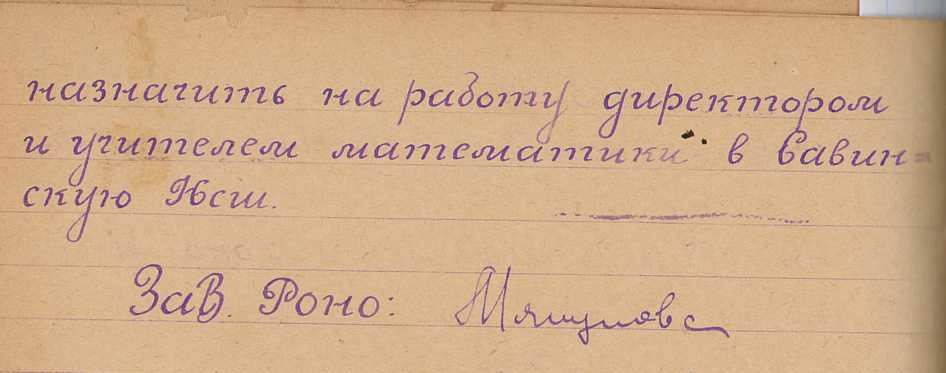 назначить на работу директором
и учителем математики в Савин-
скую Нсш.
Зав. Роно: